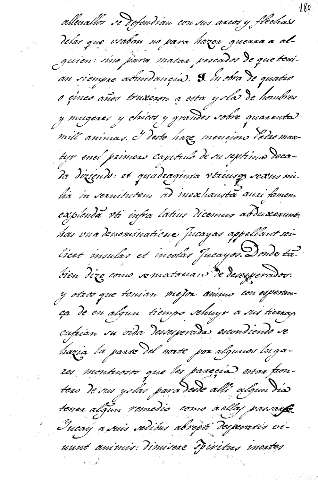 180
allenallos se defendian con sus arcos y flechas
delas que usaban no para hazer guerra a al-
guien: sino para matar pescados de que teni-
an siempre abundancia. En obra de quatro
o cinco años truxeron a esta ysla de hombres
y mugeres y chicos y grandes sobre quarenta
mill animas. Y desto haze mencion Pedro mar-
tyr en el primero capitulo de su septima deca-
da diziendo: et quadraginta utriusque sexus mi-
lia in servitutem ad inexhaustā auri famem
explendā uti infra latius dicemus abduxerunt
has una denominatione Jucayas appellant sci-
licet insulas et incolas Jucayos. Donde tā-
bien dize como se matavan de desesperados
y otros que tenian mejor animo con esperan-
ça de en algun tiempo se huyr a sus tierras
cufrian su vida desesperada escondiendo se
hazia la parte del norte por algunos luga-
res montuosos que les parecia estar fron-
tero de sus yslas para desde alli algun dia
tener algun remedio como a ellas passarse
Jucay a suis sedibus abrepti desperatis vi-
vunt animis: dimisere spiritus inertes